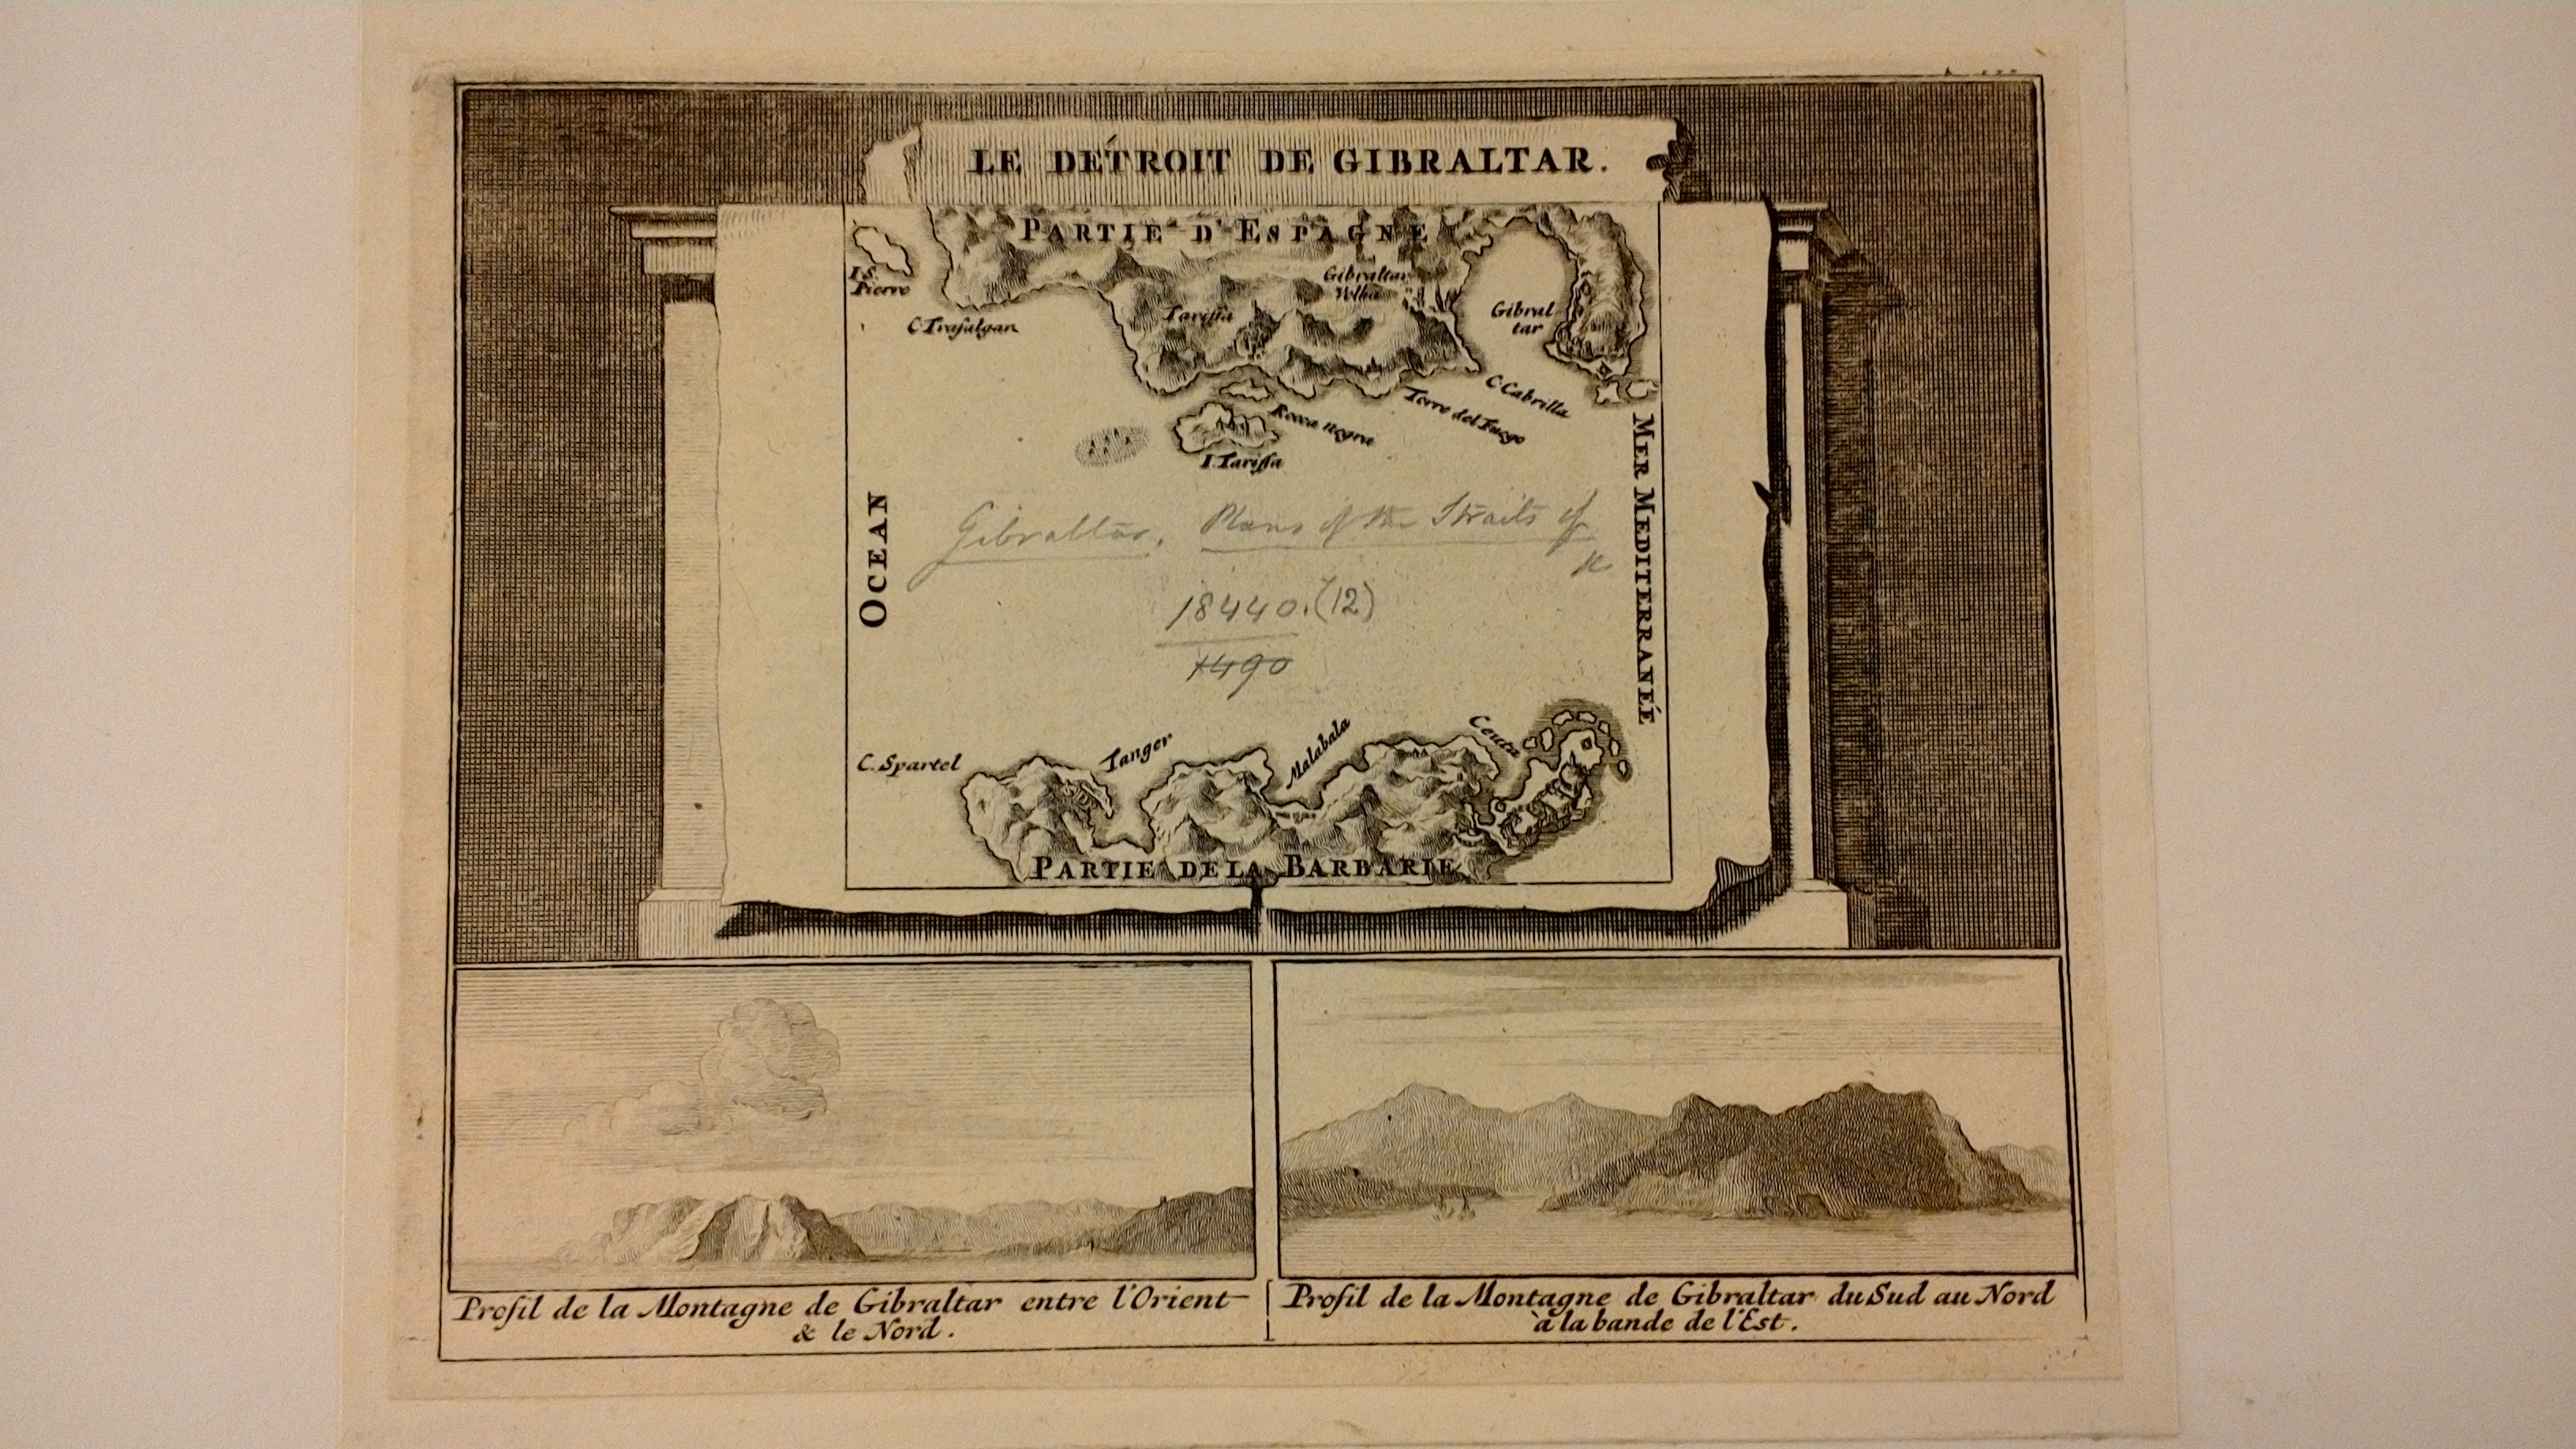 LE DÉTROIT DE GIBRALTAR.
PARTIE D'ESPAGNE
I. S.
Pierre
C. Trafalgar
Tariffa
Gibraltar
Velha
Gibral
tar
C. Cabrilla
Torre del Fuego
Rocca negra
I. Tariffa
OCEAN
MER MEDITERRANÉE
Gibraltar, Plans of the Straits of
&c
18440.(12)
1490
C. Spartel
Tanger
Malabala
Ceuta
PARTIE DE LA BARBARIE
Profil de la Montagne de Gibraltar entre l'Orient
& le Nord.
Profil de la Montagne de Gibraltar du Sud au Nord
à la bande de l'Est.